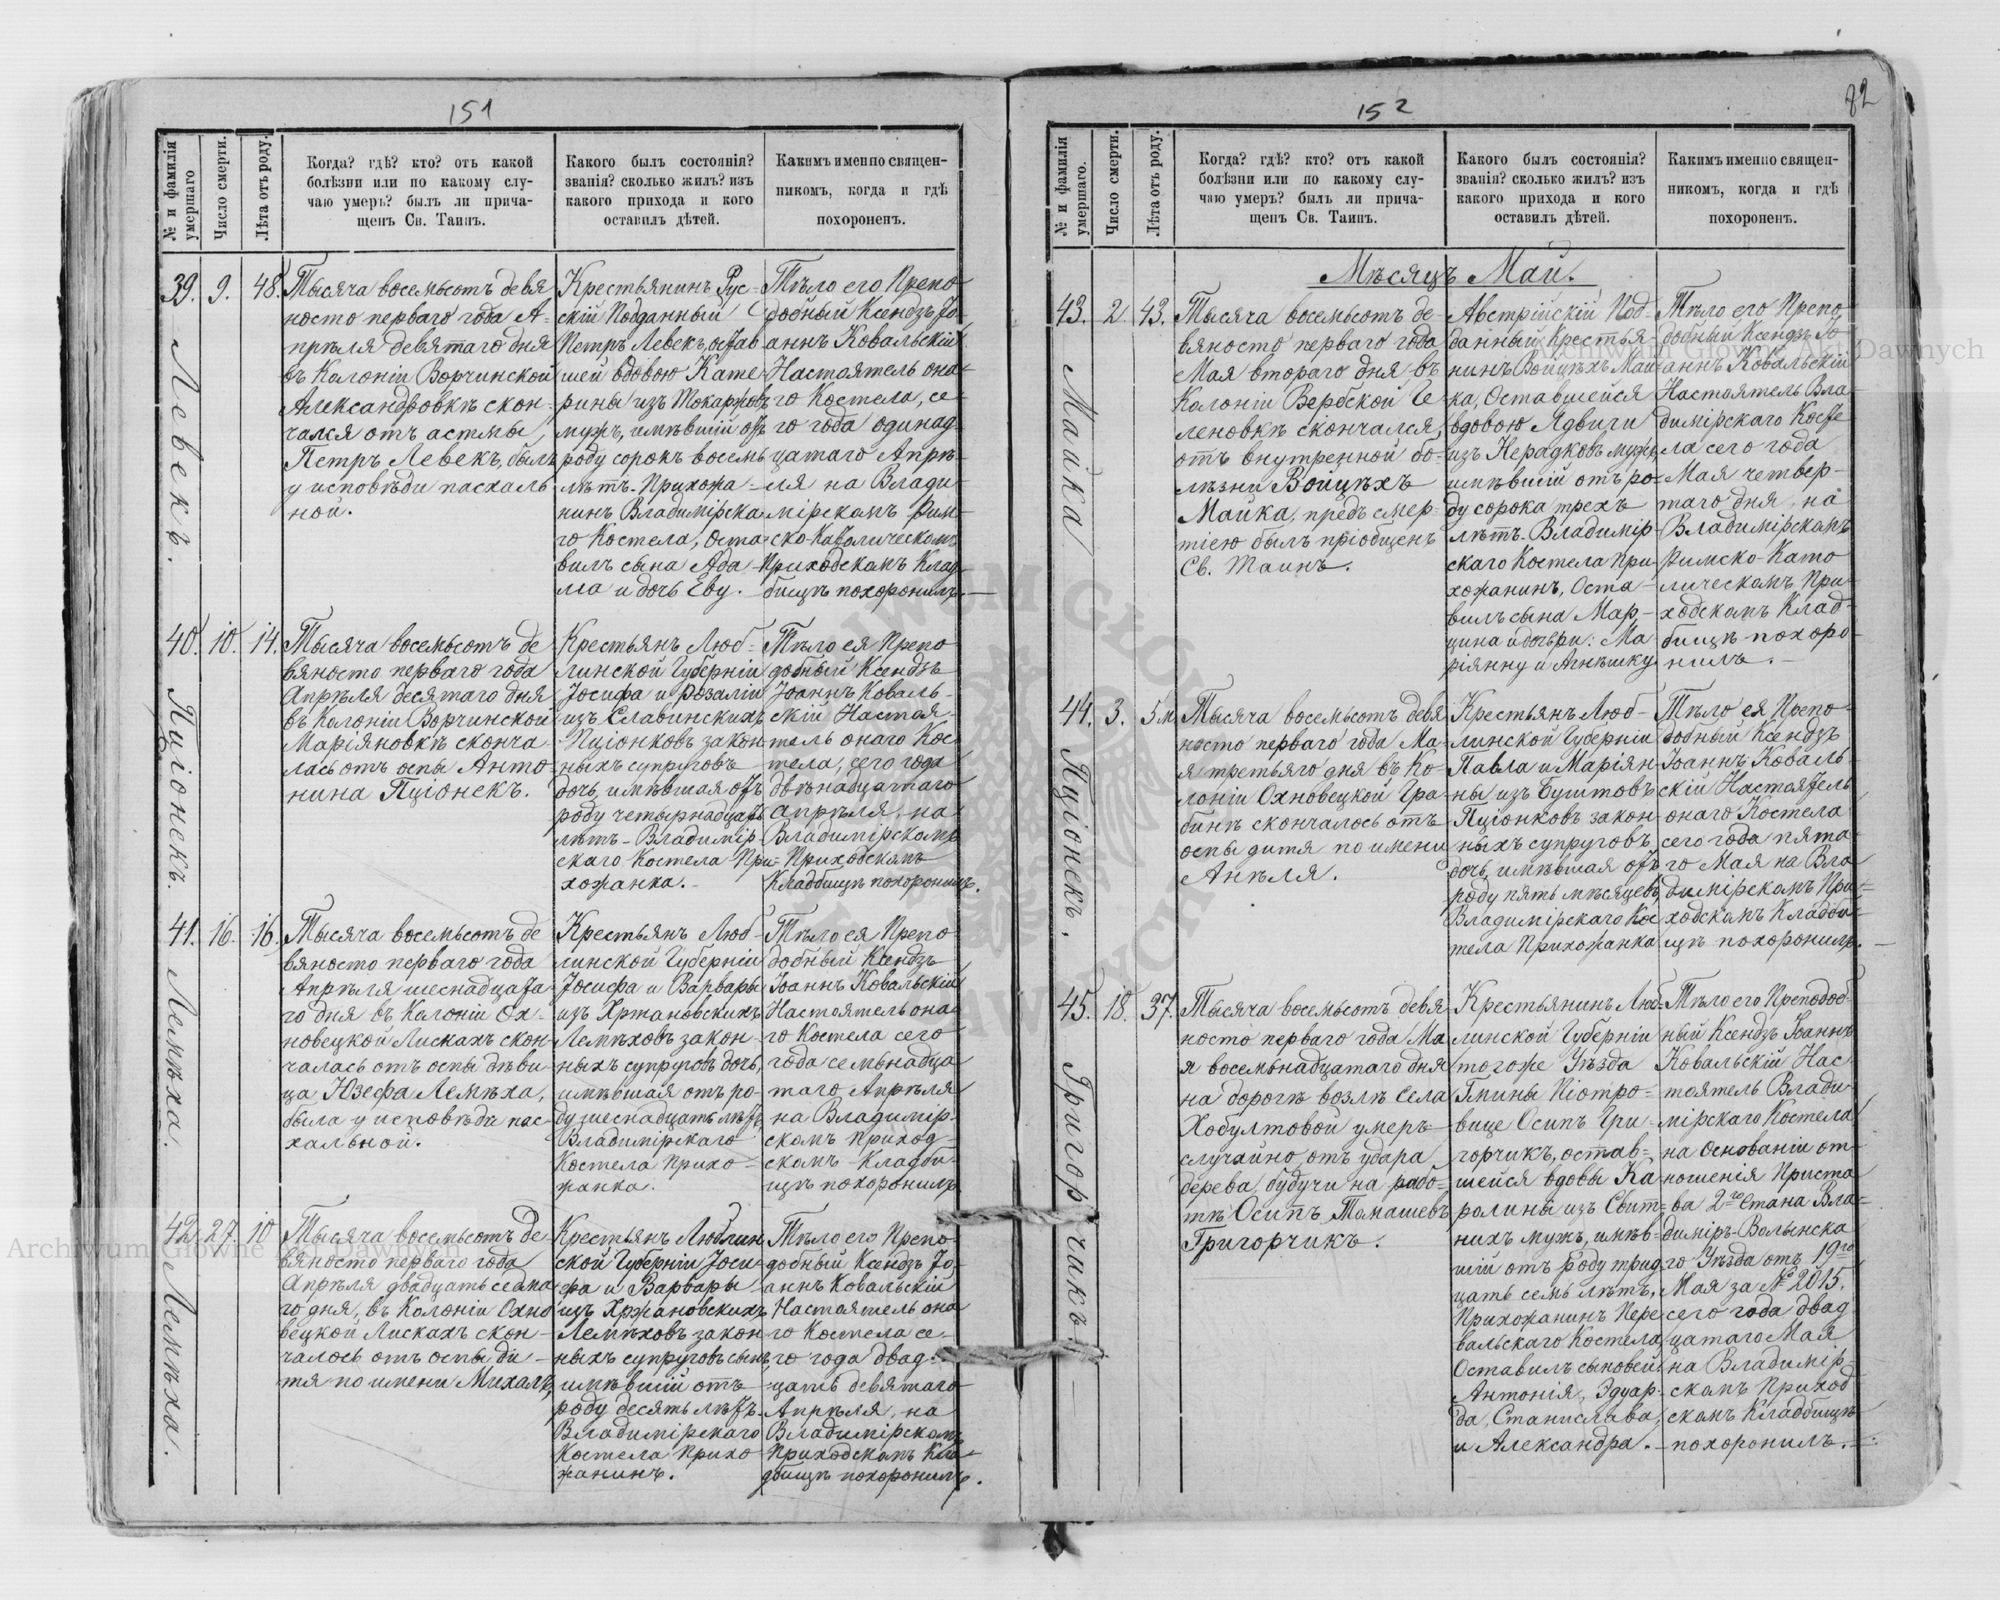 151
№ и фамилія умершаго
Число смерти.
Лѣта отъ роду.
Когда? гдѣ? кто? отъ какой
болѣзни или по какому слу-
чаю умеръ? былъ ли прича-
щенъ Св. Таинъ.
Какого былъ состоянія?
званія? сколько жилъ? изъ
какого прихода и кого
оставилъ дѣтей.
Какимъ именно священ-
никомъ, когда и гдѣ
похороненъ.
39. 9. 48.
Левекъ.
Тысяча восемьсотъ девя
носто перваго года А-
прѣля девятаго дня
въ Колоніи Ворчинской
Александровкѣ скон-
чался отъ астмы,
Петръ Левекъ, былъ
у исповѣди пасхаль
ной.
Крестьянинъ Рус-
скій Подданный
Петръ Левекъ, остав
шей вдовою Кате-
рины изъ Токаржовъ
мужъ, имѣвшій отъ
роду сорокъ восемь
лѣтъ. Прихожа-
нинъ Владимірска
го Костела, Оста-
вилъ сына Ада-
ма и дочь Еву.
Тѣло его Препо-
добный Ксендзъ Іо-
аннъ Ковальскій
Настоятель она-
го Костела, се-
го года одинад-
цатаго Апрѣ-
ля на Влади-
мірскомъ Рим-
ско-Католическомъ
Приходскомъ Клад-
бищѣ похоронилъ.
40. 10. 14.
Пціонекъ.
Тысяча восемьсотъ де
вяносто перваго года
Апрѣля десятаго дня
въ Колоніи Ворчинской
Маріяновкѣ сконча
лась отъ оспы Анто
нина Пціонекъ.
Крестьянъ Люб-
линской Губерніи
Іосифа и Розаліи
изъ Славинскихъ
Пціонковъ закон-
ныхъ супруговъ
дочь, имѣвшая отъ
роду четырнадцать
лѣтъ. Владимір-
скаго Костела При-
хожанка.
Тѣло ея Препо
добный Ксендзъ
Іоаннъ Коваль-
скій Настоя-
тель онаго Кос-
тела, сего года
двѣнадцатаго
Апрѣля, на
Владимірскомъ
Приходскомъ
Кладбищѣ похоронилъ.
41. 16. 16.
Лемѣха.
Тысяча восемьсотъ де
вяносто перваго года
Апрѣля шеснадцата
го дня въ Колоніи Ох-
новецкой Лискахъ скон-
чалась отъ оспы дѣви
ца Юзефа Лемѣха,
была у исповѣди пас-
хальной.
Крестьянъ Люб-
линской Губерніи
Іосифа и Варвары
изъ Хржановскихъ
Лемѣховъ закон-
ныхъ супруговъ дочь,
имѣвшая отъ ро-
ду шеснадцать лѣтъ
Владимірскаго
Костела Прихо-
жанка.
Тѣло ея Препо
добный Ксендзъ
Іоаннъ Ковальскій
Настоятель она
го Костела сего
года семьнадца
таго Апрѣля
на Владимір-
скомъ Приход-
скомъ Кладби-
щѣ похоронилъ
42. 27. 10
Лемѣха.
Тысяча восемьсотъ де
вяносто перваго года
Апрѣля двадцать седма
го дня, въ Колоніи Охно
вецкой Лискахъ скон-
чалось отъ оспы ди-
тя по имени Михалъ,
Крестьянъ Люблин
ской Губерніи Іоси-
фа и Варвары
изъ Хржановскихъ
Лемѣховъ закон-
ныхъ супруговъ сынъ,
имѣвшій отъ
роду десять лѣтъ.
Владимірскаго
Костела Прихо
жанинъ.
Тѣло его Препо-
добный Ксендзъ Іо-
аннъ Ковальскій
Настоятель она
го Костела се-
го года двад-
цать девятаго
Апрѣля, на
Владимірскомъ
Приходскомъ Кла-
дбищѣ похоронилъ.
152
82
№ и фамилія умершаго.
Число смерти.
Лѣта отъ роду.
Когда? гдѣ? кто? отъ какой
болѣзни или по какому слу-
чаю умеръ? былъ ли прича-
щенъ Св. Таинъ.
Какого былъ состоянія?
званія? сколько жилъ? изъ
какого прихода и кого
оставилъ дѣтей.
Какимъ именно священ-
никомъ, когда и гдѣ
похороненъ.
Мѣсяцъ Май.
43. 2. 43.
Майка
Тысяча восемьсотъ де-
вяносто перваго года
Мая втораго дня въ
Колоніи Вербской Ге-
леновкѣ скончался,
отъ внутренной бо-
лѣзни Войцѣхъ
Майка, предъ смер-
тію былъ пріобщенъ
Св. Таинъ.
Австрійскій Под-
данный Крестья
нинъ Войцѣхъ Май
ка, Оставшейся
вдовою Ядвиги
изъ Нерадковъ мужъ
имѣвшій отъ ро-
ду сорока трехъ
лѣтъ. Владимір-
скаго Костела При
хожанинъ, Оста-
вилъ сына Мар-
цина и дочери: Ма-
ріянну и Агнѣшку
Тѣло его Препо-
добный Ксендзъ Іо-
аннъ Ковальскій
Настоятель Вла-
димірскаго Косте
ла сего года
Мая четвер-
таго дня на
Владимірскомъ
Римско-Като
лическомъ При-
ходскомъ Клад-
бищѣ похоро-
нилъ.
44. 3. 5м
Пціонекъ.
Тысяча восемьсотъ девя
носто перваго года Ма-
я третьяго дня въ Ко-
лоніи Охновецкой Гра-
бинѣ скончалось отъ
оспы дитя по имени
Анѣля.
Крестьянъ Люб-
линской Губерніи
Павла и Маріян-
ны изъ Буштовъ
Пціонковъ закон
ныхъ супруговъ,
дочь, имѣвшая отъ
роду пять мѣсяцевъ,
Владимірскаго Кос
тела Прихожанка
Тѣло ея Препо-
добный Ксендзъ
Іоаннъ Коваль-
скій Настоятель
онаго Костела
сего года пята-
го Мая на Вла-
димірскомъ При-
ходскомъ Кладби-
щѣ похоронилъ.
45. 18. 37.
Григорчикъ.
Тысяча восемьсотъ девя
носто перваго года Ма
я восемьнадцатаго дня
на дорогѣ возлѣ Села
Хобултовой умеръ
случайно отъ удара
дерева, будучи на рабо-
тѣ Осипъ Томашевъ
Григорчикъ.
Крестьянинъ Люб-
линской Губерніи
тогоже Уѣзда
Гмины Піотро-
вице Осипъ Гри-
горчикъ, остав-
шейся вдовы Ка
ролины изъ Свит-
нихъ мужъ, имѣв-
шій отъ роду трид
цать семь лѣтъ,
Прихожанинъ Пере
вальскаго Костела,
Оставилъ сыновей:
Антонія, Эдуар-
да, Станислава,
и Александра.
Тѣло его Преподоб-
ный Ксендзъ Іоаннъ
Ковальскій Нас-
тоятель Влади
мірскаго Костела
на основаніи от-
ношенія Приста
ва 2го Стана Вла-
диміръ-Волынска
го Уѣзда отъ 19го
Мая за № 2015.
сего года двад
цатаго Мая
на Владимір-
скомъ Приход
скомъ Кладбищѣ
похоронилъ.
Archiwum Główne Akt Dawnych
Archiwum Główne Akt Dawnych